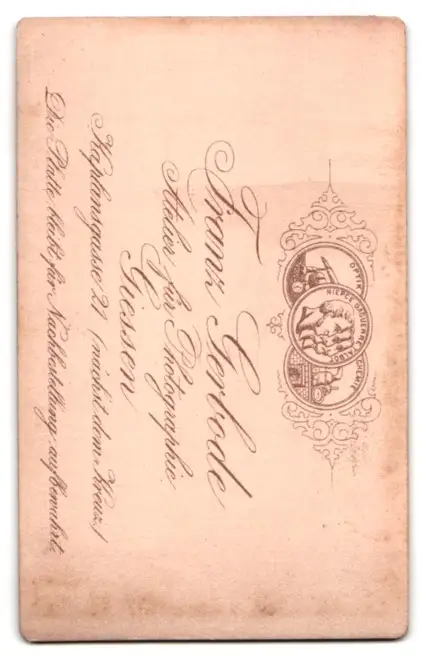 OPTIK
NIEPCE DAGUERRE TALBOT
CHEMIE
Franz Gerbode
Atelier für Photographie
Giessen
Kaplansgasse 21 (nächst dem Kreuz)
Die Platte bleibt für Nachbestellung aufbewahrt.